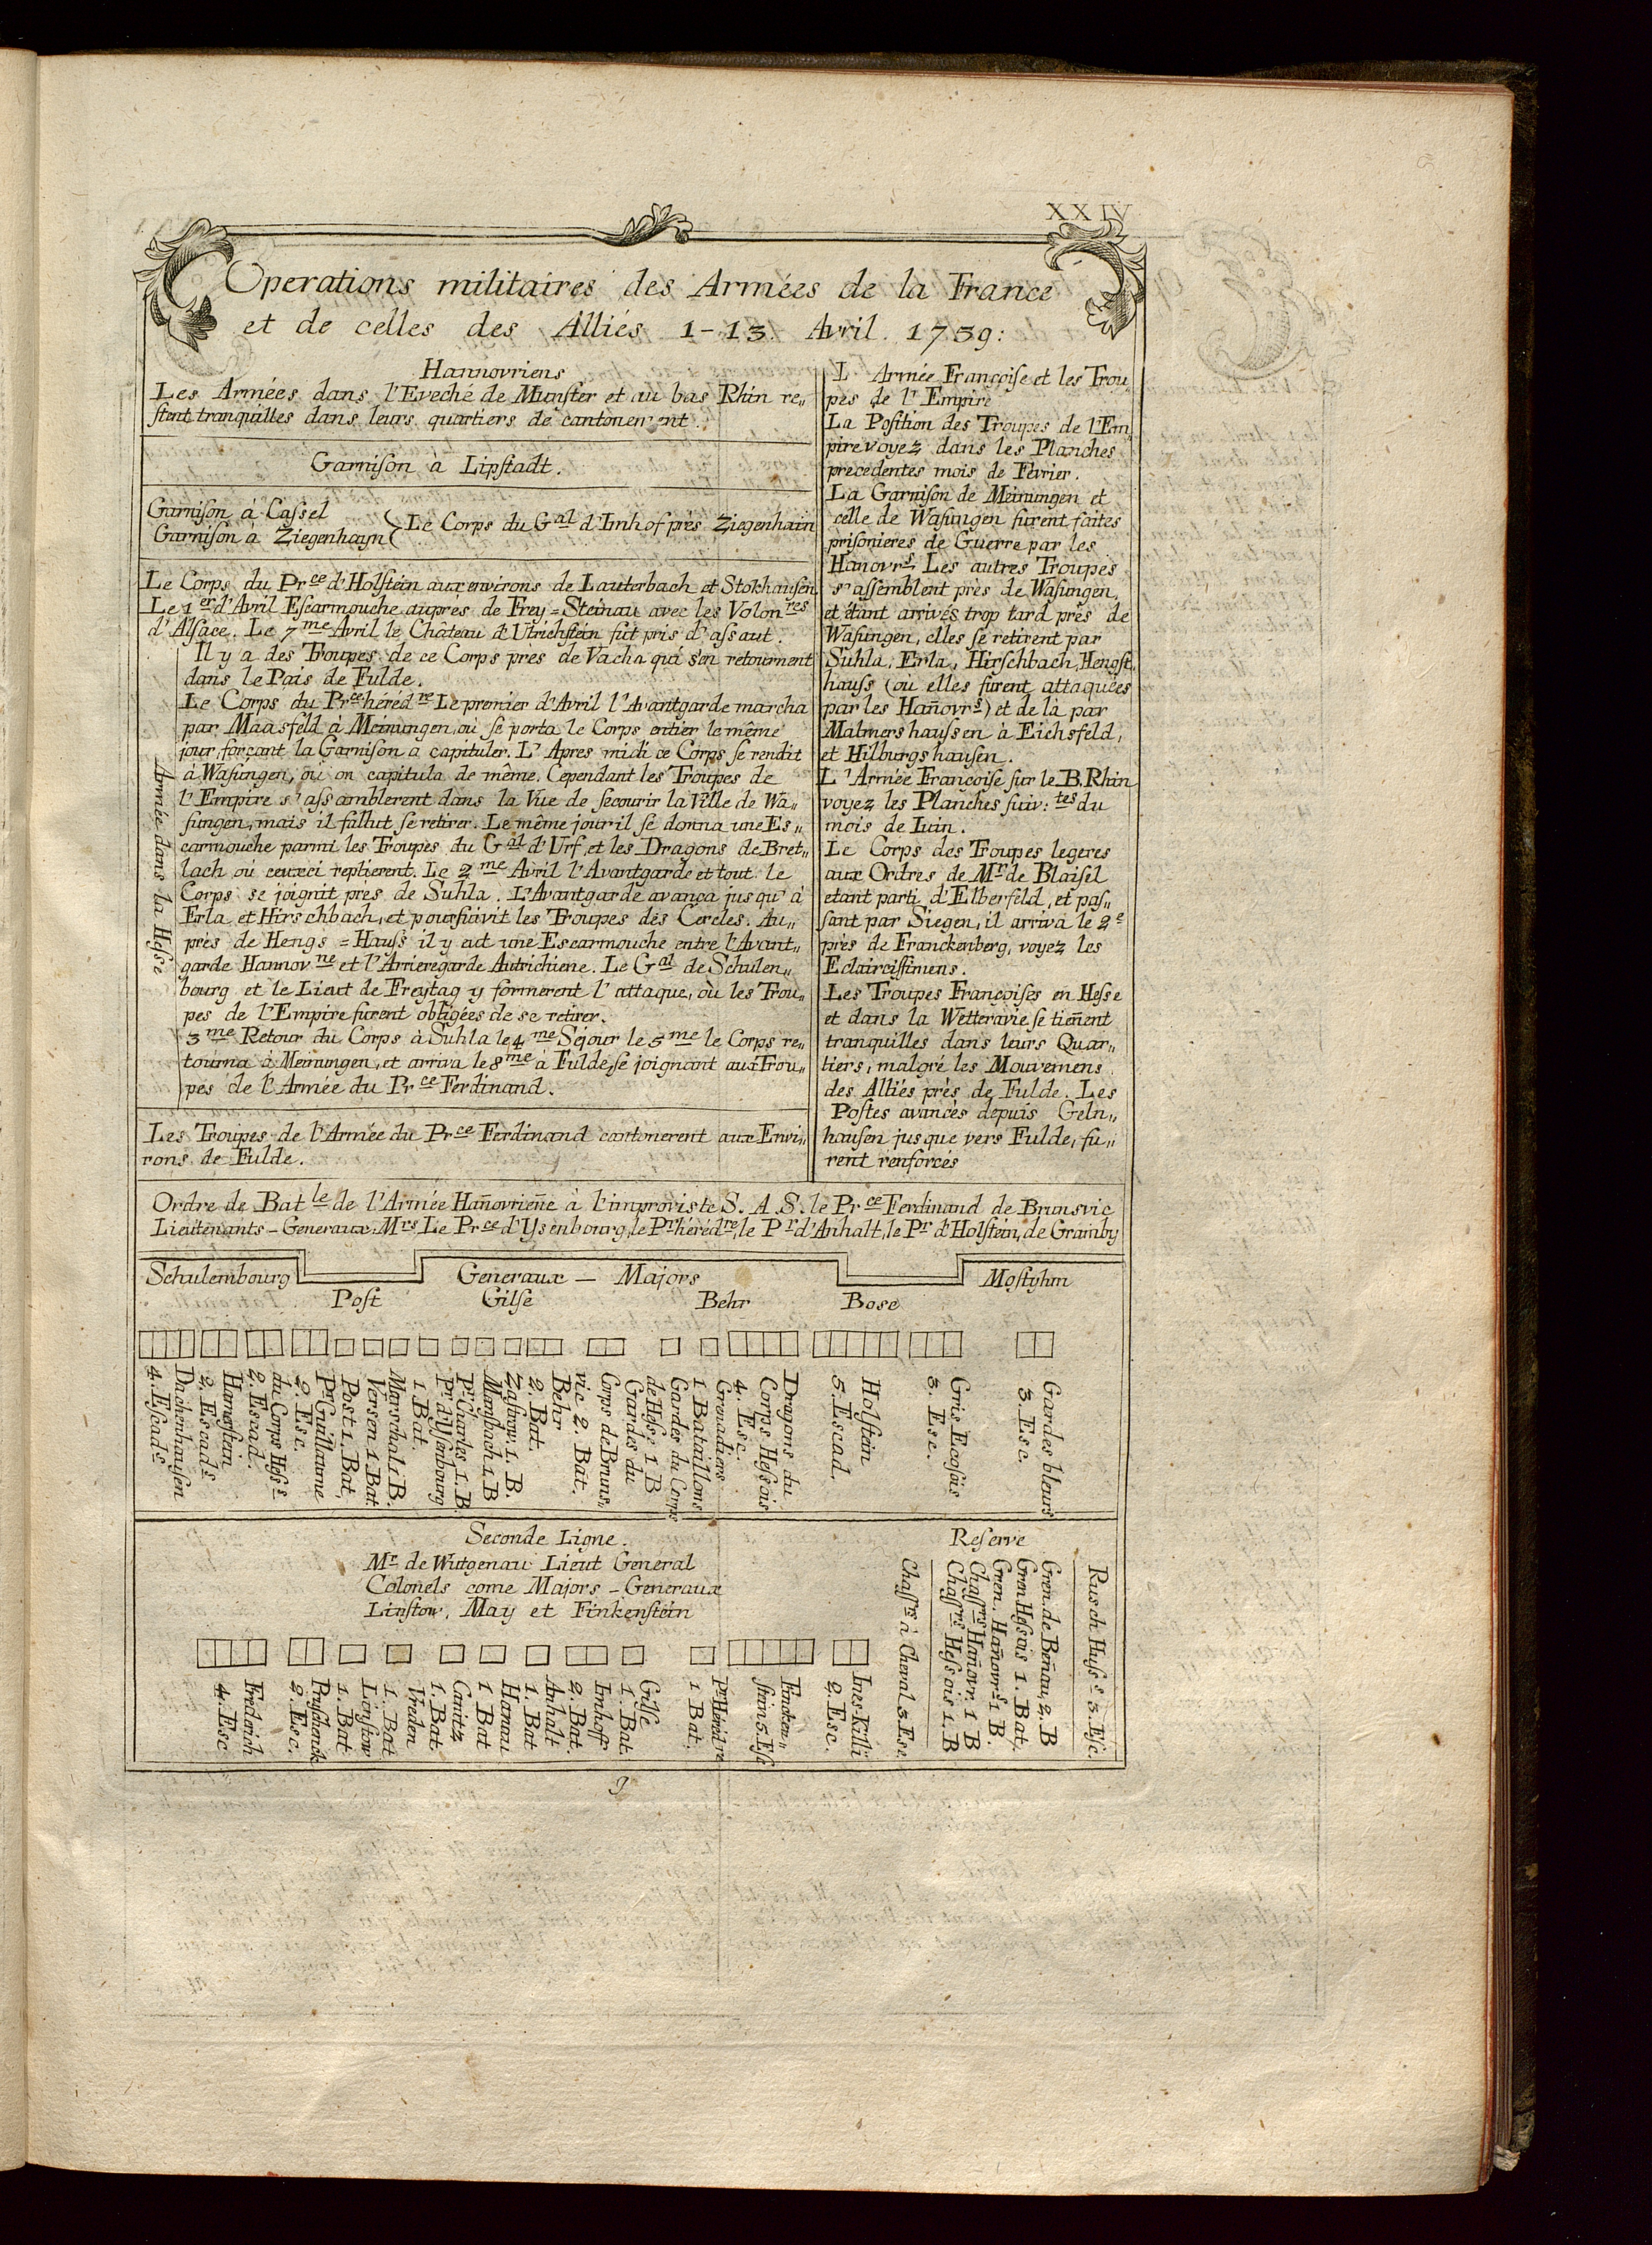 XXIV
Operations militaires des Armées de la France
et de celles des Alliés 1-13. Avril. 1759:
Hannovriens
Les Armées dans l'Eveché de Munſter et au bas Rhin re„
ſtent tranquilles dans leurs quartiers de cantonement.
Garniſon à Lipſtadt.
Garniſon à Caſſel
Garniſon à Ziegenhayn
Le Corps du Gal d'Imhof près Ziegenhain
Le Corps du Prce d'Holſtein aux environs de Lauterbach et Stokhauſen
Le 1er d'Avril Eſcarmouche aupres de Frey=Steinau avec les Volonres
d'Alſace. Le 7me Avril le Château d'Utrichſtein fut pris d'aſſaut.
Il y a des Troupes de ce Corps pres de Vacha qui s'en retournent
dans le Pais de Fulde.
Le Corps du Prce hérédre Le premier d'Avril l'Avantgarde marcha
par Maasfeld à Meinungen, où ſe porta le Corps entier le même
jour, forçant la Garniſon a capituler. L'Apres midi ce Corps ſe rendit
à Waſungen, où on capitula de même. Cependant les Troupes de
l'Empire s'aſſamblerent dans la Vue de ſecourir la Ville de Wa„
ſungen, mais il fallut ſe retirer. Le même jour il ſe donna une Es„
carmouche parmi les Troupes du Gal d'Urf, et les Dragons de Bret„
lach où ceuxci replierent. Le 2me Avril l'Avantgarde et tout le
Corps se joignit près de Suhla. L'Avantgarde avança jusqu'à
Erla et Hirschbach, et pourſuivit les Troupes des Cercles. Au„
près de Hengs=Hauſs il y eut une Escarmouche entre l'Avant„
garde Hannovne et l'Arrieregarde Autrichiene. Le Gal de Schulen„
bourg et le Lieut de Freytag y formerent l'attaque, où les Trou„
pes de l'Empire furent obligées de se retirer.
3me Retour du Corps à Suhla le 4me Séjour le 5me le Corps re„
tourna à Meinungen, et arriva le 8me à Fulde, ſe joignant aux Trou„
pes de l'Armée du Prce Ferdinand.
Armée dans la Heſse
Les Troupes de l'Armée du Prce Ferdinand cantonerent aux Envi„
rons de Fulde.
L'Armée Françoiſe et les Trou„
pes de l'Empire
La Poſition des Troupes de l'Em„
pire voyez dans les Planches
precedentes mois de Février.
La Garniſon de Meinungen et
celle de Waſungen furent faites
priſonieres de Guerre par les
Hanovrs. Les autres Troupes
s'aſſemblent près de Waſungen,
et étant arrivés trop tard près de
Waſungen, elles ſe retirent par
Suhla, Erla, Hirſchbach, Hengſt
hauſs (où elles furent attaquées
par les Hañovrs) et de là par
Malmershauſsen à Eichsfeld,
et Hilburgshauſen.
L'Armée Françoiſe ſur le B. Rhin
voyez les Planches ſuiv:tes du
mois de Iuin.
Le Corps des Troupes legeres
aux Ordres de Mr de Blaiſel
etant parti d'Elberfeld, et paſ„
ſant par Siegen, il arriva le 2e
près de Franckenberg, voyez les
Eclairciſſimens.
Les Troupes Françoiſes en Heſse
et dans la Wetteravie ſe tieñent
tranquilles dans leurs Quar„
tiers, malgré les Mouvemens
des Alliés près de Fulde. Les
Poſtes avancés depuis Geln„
hauſen juſque vers Fulde, fu„
rent renforcés
Ordre de Batle de l'Armée Hañovrieñe à l'improviste S. A. S. le Prce Ferdinand de Brunsvic
Lieutenants-Generaux Mrs Le Prce d'Ysenbourg, le Pr hérédre, le Pr d'Anhalt, le Pr d'Holſtein, de Gramby
Schulembourg
Generaux — Majors
Moſtyhm
Poſt
Gilſe
Behr
Bose
Dachenhauſen
4. Eſcads
Hamerſtein
2. Escads
du Corps Heſss
2. Escad.
Pr. Guillaume
2. Esc.
Post 1. Bat
Versen 1 Bat
Marschal 1 B.
Pr. d'Iſsenbourg
1. Bat.
Pr. Charles 1. B
Mansbach 1 B
Zaſtrow. 1. B.
Behr
2. Bat.
Corps de Bruns„
vic 2. Bat.
Gardes du
de Heſse 1 B
Gardes du Corps
1 Bataillons
Grenadiers
4. Esc.
Corps Heſsois
Dragons du
Holſtein
5. Escad.
Gris Ecoſois
3. Esc.
Gardes bleurs
3. Esc.
Seconde Ligne.
Mr de Wutgenau Lieut General
Colonels come Majors-Generaux
Linſtow, May et Finkenſtein
Reſerve
Ruſch Huſss 3. Eſc.
Gren. de Beñau, 2. B
Gren. Heſsois 1. Bat.
Gren. Hañovrs 1 B.
Chaſſrs Hañovr. 1 B
Chaſſrs Heſsois 1. B
Chaſſrs à Cheval 3. Esc.
Frederich
4. Esc
Pruſchenck
2. Esc.
Linſtow
1. Bat
Vreden
1. Bat
Canitz
1. Bat
Hanau
1 Bat
Anhalt
1. Bat
Imhoff
2. Bat.
Gilſe
1. Bat.
Pr. Hérédre
1 Bat.
Fincken„
ſtein 5. Eſc
Ines-Killi
2. Esc.